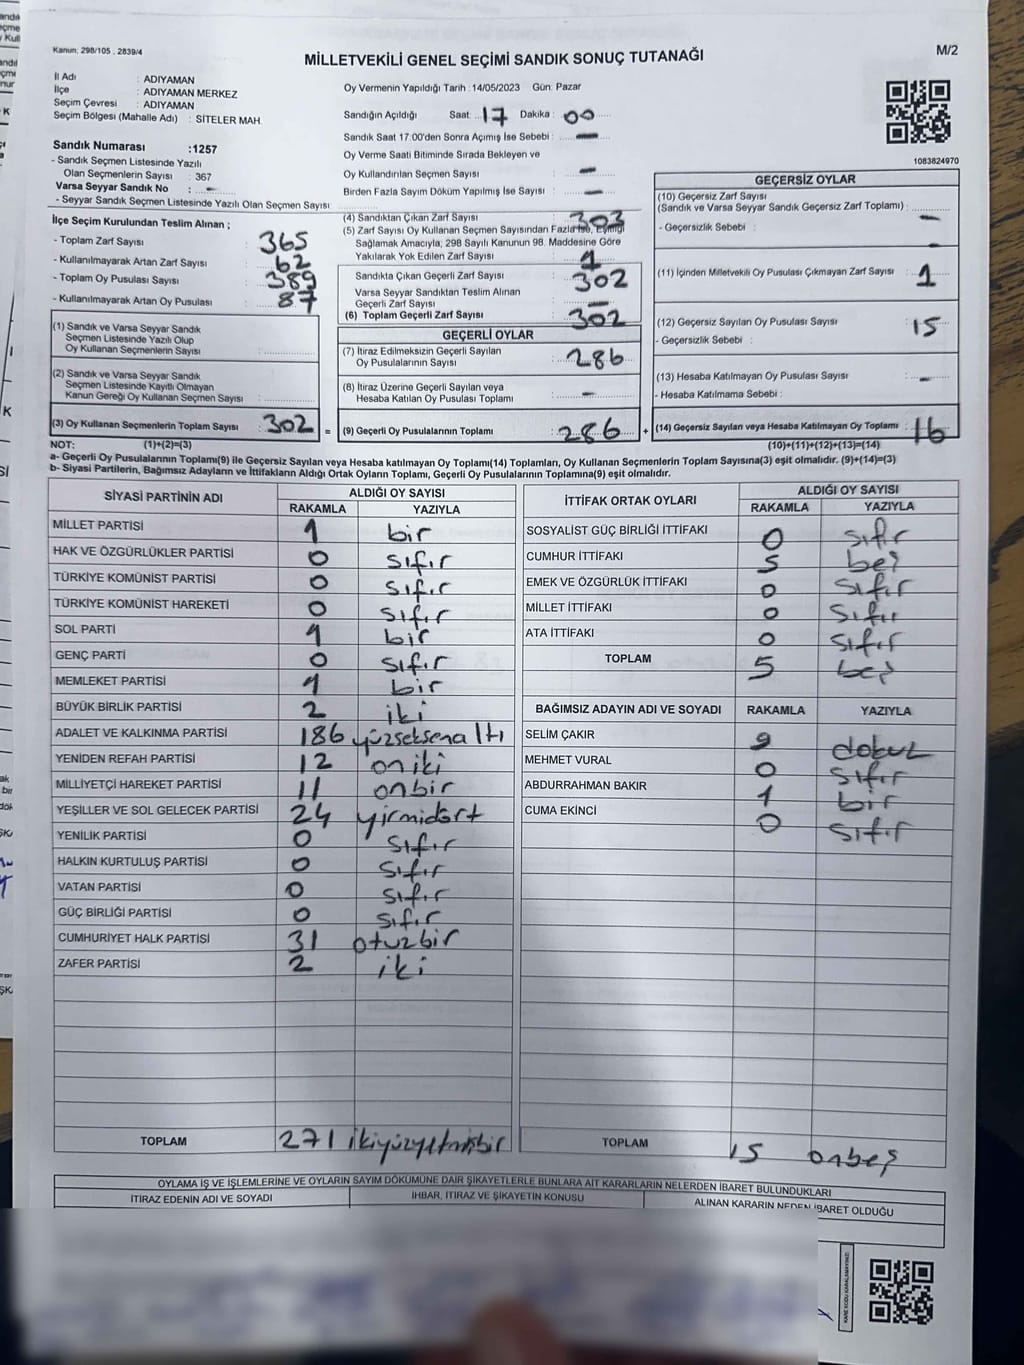 Kanun; 298/105 , 2839/4
M/2
MİLLETVEKİLİ GENEL SEÇİMİ SANDIK SONUÇ TUTANAĞI
İl Adı : ADIYAMAN
İlçe : ADIYAMAN MERKEZ
Seçim Çevresi : ADIYAMAN
Seçim Bölgesi (Mahalle Adı) : SİTELER MAH.
Sandık Numarası :1257
- Sandık Seçmen Listesinde Yazılı
Olan Seçmenlerin Sayısı : 367
Varsa Seyyar Sandık No : -
- Seyyar Sandık Seçmen Listesinde Yazılı Olan Seçmen Sayısı:
Oy Vermenin Yapıldığı Tarih :14/05/2023 Gün: Pazar
Sandığın Açıldığı Saat: 17 Dakika : 00
Sandık Saat 17:00'den Sonra Açımış İse Sebebi : -
Oy Verme Saati Bitiminde Sırada Bekleyen ve
Oy Kullandırılan Seçmen Sayısı : -
Birden Fazla Sayım Döküm Yapılmış İse Sayısı : -
1083824970
İlçe Seçim Kurulundan Teslim Alınan ;
- Toplam Zarf Sayısı : 365
- Kullanılmayarak Artan Zarf Sayısı : 62
- Toplam Oy Pusulası Sayısı : 389
- Kullanılmayarak Artan Oy Pusulası : 87
(1) Sandık ve Varsa Seyyar Sandık
Seçmen Listesinde Yazılı Olup
Oy Kullanan Seçmenlerin Sayısı :
(2) Sandık ve Varsa Seyyar Sandık
Seçmen Listesinde Kayıtlı Olmayan
Kanun Gereği Oy Kullanan Seçmen Sayısı :
(3) Oy Kullanan Seçmenlerin Toplam Sayısı : 302 =
(4) Sandıktan Çıkan Zarf Sayısı : 303
(5) Zarf Sayısı Oy Kullanan Seçmen Sayısından Fazla İse, Eşitliği
Sağlamak Amacıyla, 298 Sayılı Kanunun 98. Maddesine Göre
Yakılarak Yok Edilen Zarf Sayısı : 1
Sandıkta Çıkan Geçerli Zarf Sayısı : 302
Varsa Seyyar Sandıktan Teslim Alınan
Geçerli Zarf Sayısı : -
(6) Toplam Geçerli Zarf Sayısı : 302
GEÇERLİ OYLAR
(7) İtiraz Edilmeksizin Geçerli Sayılan
Oy Pusulalarının Sayısı : 286
(8) İtiraz Üzerine Geçerli Sayılan veya
Hesaba Katılan Oy Pusulası Toplamı : -
(9) Geçerli Oy Pusulalarının Toplamı : 286 +
GEÇERSİZ OYLAR
(10) Geçersiz Zarf Sayısı
(Sandık ve Varsa Seyyar Sandık Geçersiz Zarf Toplamı) : -
- Geçersizlik Sebebi : -
(11) İçinden Milletvekili Oy Pusulası Çıkmayan Zarf Sayısı : 1
(12) Geçersiz Sayılan Oy Pusulası Sayısı : 15
- Geçersizlik Sebebi :
(13) Hesaba Katılmayan Oy Pusulası Sayısı : -
- Hesaba Katılmama Sebebi :
(14) Geçersiz Sayılan veya Hesaba Katılmayan Oy Toplamı : 16
NOT: (1)+(2)=(3) (10)+(11)+(12)+(13)=(14)
a- Geçerli Oy Pusulalarının Toplamı(9) ile Geçersiz Sayılan veya Hesaba katılmayan Oy Toplamı(14) Toplamları, Oy Kullanan Seçmenlerin Toplam Sayısına(3) eşit olmalıdır. (9)+(14)=(3)
b- Siyasi Partilerin, Bağımsız Adayların ve İttifakların Aldığı Ortak Oyların Toplamı, Geçerli Oy Pusulalarının Toplamına(9) eşit olmalıdır.
SİYASİ PARTİNİN ADI ALDIĞI OY SAYISI
RAKAMLA YAZIYLA
MİLLET PARTİSİ 1 bir
HAK VE ÖZGÜRLÜKLER PARTİSİ 0 sıfır
TÜRKİYE KOMÜNİST PARTİSİ 0 sıfır
TÜRKİYE KOMÜNİST HAREKETİ 0 sıfır
SOL PARTİ 1 bir
GENÇ PARTİ 0 sıfır
MEMLEKET PARTİSİ 1 bir
BÜYÜK BİRLİK PARTİSİ 2 iki
ADALET VE KALKINMA PARTİSİ 186 yüzseksenaltı
YENİDEN REFAH PARTİSİ 12 oniki
MİLLİYETÇİ HAREKET PARTİSİ 11 onbir
YEŞİLLER VE SOL GELECEK PARTİSİ 24 yirmidört
YENİLİK PARTİSİ 0 sıfır
HALKIN KURTULUŞ PARTİSİ 0 sıfır
VATAN PARTİSİ 0 sıfır
GÜÇ BİRLİĞİ PARTİSİ 0 sıfır
CUMHURİYET HALK PARTİSİ 31 otuzbir
ZAFER PARTİSİ 2 iki
TOPLAM 271 ikiyüzyetmişbir
İTTİFAK ORTAK OYLARI ALDIĞI OY SAYISI
RAKAMLA YAZIYLA
SOSYALİST GÜÇ BİRLİĞİ İTTİFAKI 0 sıfır
CUMHUR İTTİFAKI 5 beş
EMEK VE ÖZGÜRLÜK İTTİFAKI 0 sıfır
MİLLET İTTİFAKI 0 sıfır
ATA İTTİFAKI 0 sıfır
TOPLAM 5 beş
BAĞIMSIZ ADAYIN ADI VE SOYADI RAKAMLA YAZIYLA
SELİM ÇAKIR 9 dokuz
MEHMET VURAL 0 sıfır
ABDURRAHMAN BAKIR 1 bir
CUMA EKİNCİ 0 sıfır
TOPLAM 15 onbeş
OYLAMA İŞ VE İŞLEMLERİNE VE OYLARIN SAYIM DÖKÜMÜNE DAİR ŞİKAYETLERLE BUNLARA AİT KARARLARIN NELERDEN İBARET BULUNDUKLARI
İTİRAZ EDENİN ADI VE SOYADI İHBAR, İTİRAZ VE ŞİKAYETİN KONUSU ALINAN KARARIN NEDEN İBARET OLDUĞU
KARE KODU KARALAMAYINIZ!